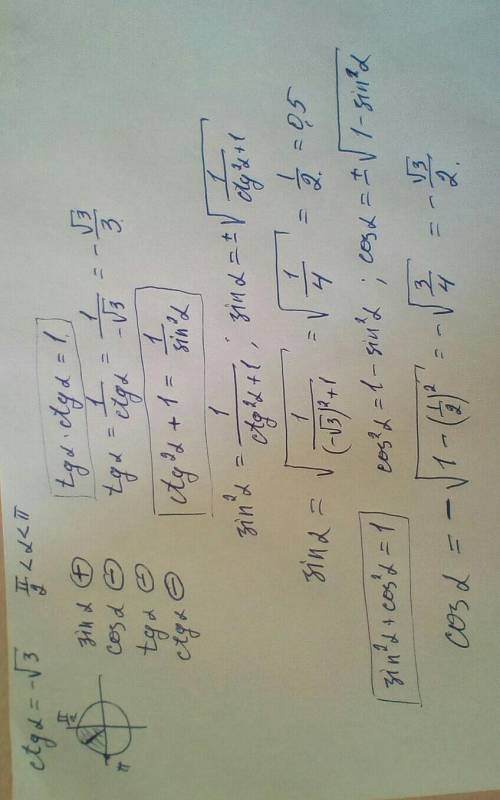 ctgα = -√3    π/2 < α < π
π/2
π
sinα ⊕
cosα ⊖
tgα ⊖
ctgα ⊖
tgα · ctgα = 1
tgα = 1/ctgα = 1/-√3 = -√3/3.
ctg²α + 1 = 1/sin²α
sin²α = 1/ctg²α+1 ; sinα = ±√(1/ctg²α+1)
sinα = √(1/(-√3)²+1) = √(1/4) = 1/2 = 0,5
sin²α + cos²α = 1    cos²α = 1 - sin²α ; cosα = ±√(1 - sin²α)
cosα = -√(1 - (1/2)²) = -√(3/4) = -√3/2.